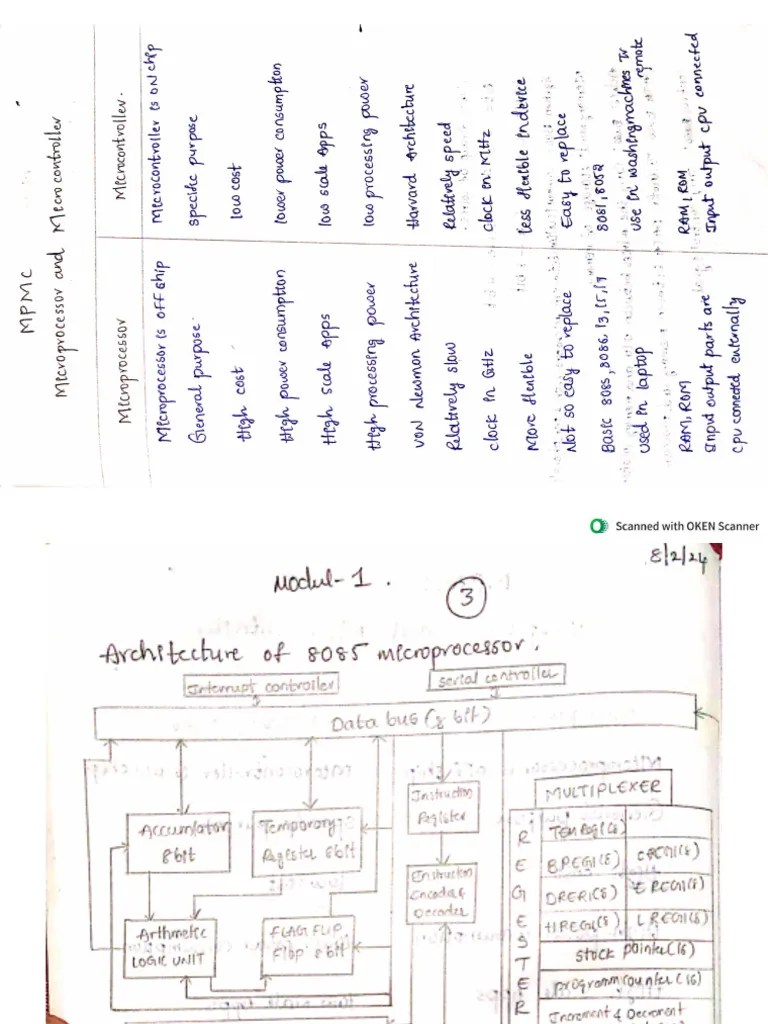 MPMC
Microprocessor and Microcontroller
Microprocessor
Microcontroller.
Microprocessor is OFF ship
Microcontroller is ON chip
General purpose.
specific purpose
High cost.
low cost
High power consumption
lower power consumption
High scale Apps
low scale Apps
High processing power
low processing power
VON Newmon Architecture
Harvard Architecture
Relatively slow
Relatively speed
clock in GHz
clock in MHz
More flexible
less flexible in device
Not so easy to replace
Easy to replace
Basic 8085, 8086, i3, i5, i7
8051, 8052
used in laptop
use in washing machines Tv
remote
RAM, ROM
RAM, ROM
Input output parts are
Input output cpu connected
cpu connected externally
Scanned with OKEN Scanner
8/2/24
Modul-1.
3
Architecture of 8085 microprocessor.
Interrupt controller
serial controller
Data bus (8 bit)
Accumlator
8bit
Temporary
Register 8bit
Instruction
Register
MULTIPLEXER
Instruction
Encoding
Decoder
Arthmetic
LOGIC UNIT
FLAG FLIP
Flop 8 bit
REGESTER
TEM REGI(8)
B REGI(8)
C REGI(8)
D RERI(8)
E REGI(8)
H REGI(8)
L REGI(8)
stack pointer(16)
programm counter(16)
Increment & Decrement